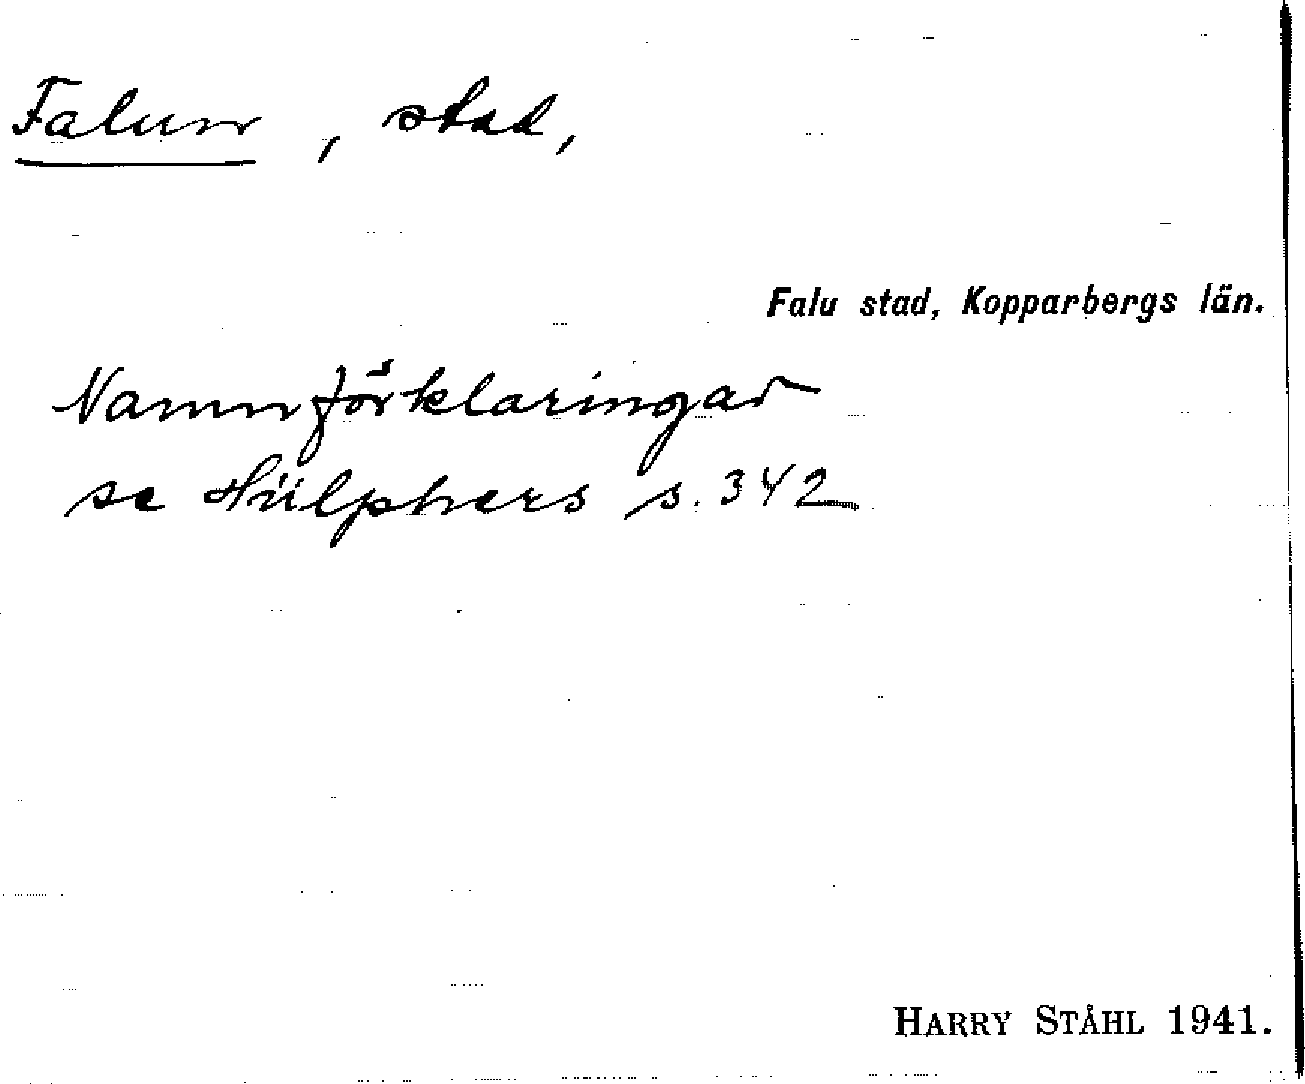 Falun, stad,
Falu stad, Kopparbergs län.
Namnförklaringar
se Hülphers s. 342
HARRY STÅHL 1941.